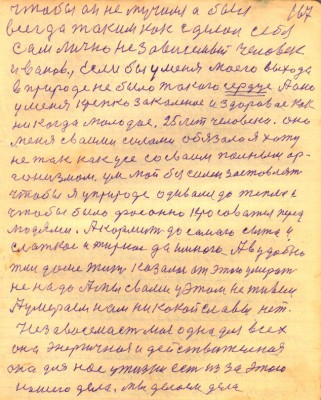 чтобы он не мучился а был 167
всегда таким как сделал себя
сам лично независемый человек
иванов, Если бы у меня моего выхода
в природе не было такого сердце А оно
у меня крепко закаленое и здоровае как
никогда молодое, 25 лет человека. оно
меня своими силами обязало я хожу
не так как усе со своим
ум мой бы сили заставлять
чтобы я у природе одивали до тепла с
чтобы было фасонно красоватся перед
людями. А кормить до самаго сыта и
слаткое и жирное да много. А в удобно
том доме жить казала от этого умирать
не надо А мы свами у этом не живем
А умераем нам никокой славы нет.
Независемаст моя одна для всех
она энергичная и действительная
она для нас у жизни ест из за этого
нашего дела. мы делаем дела